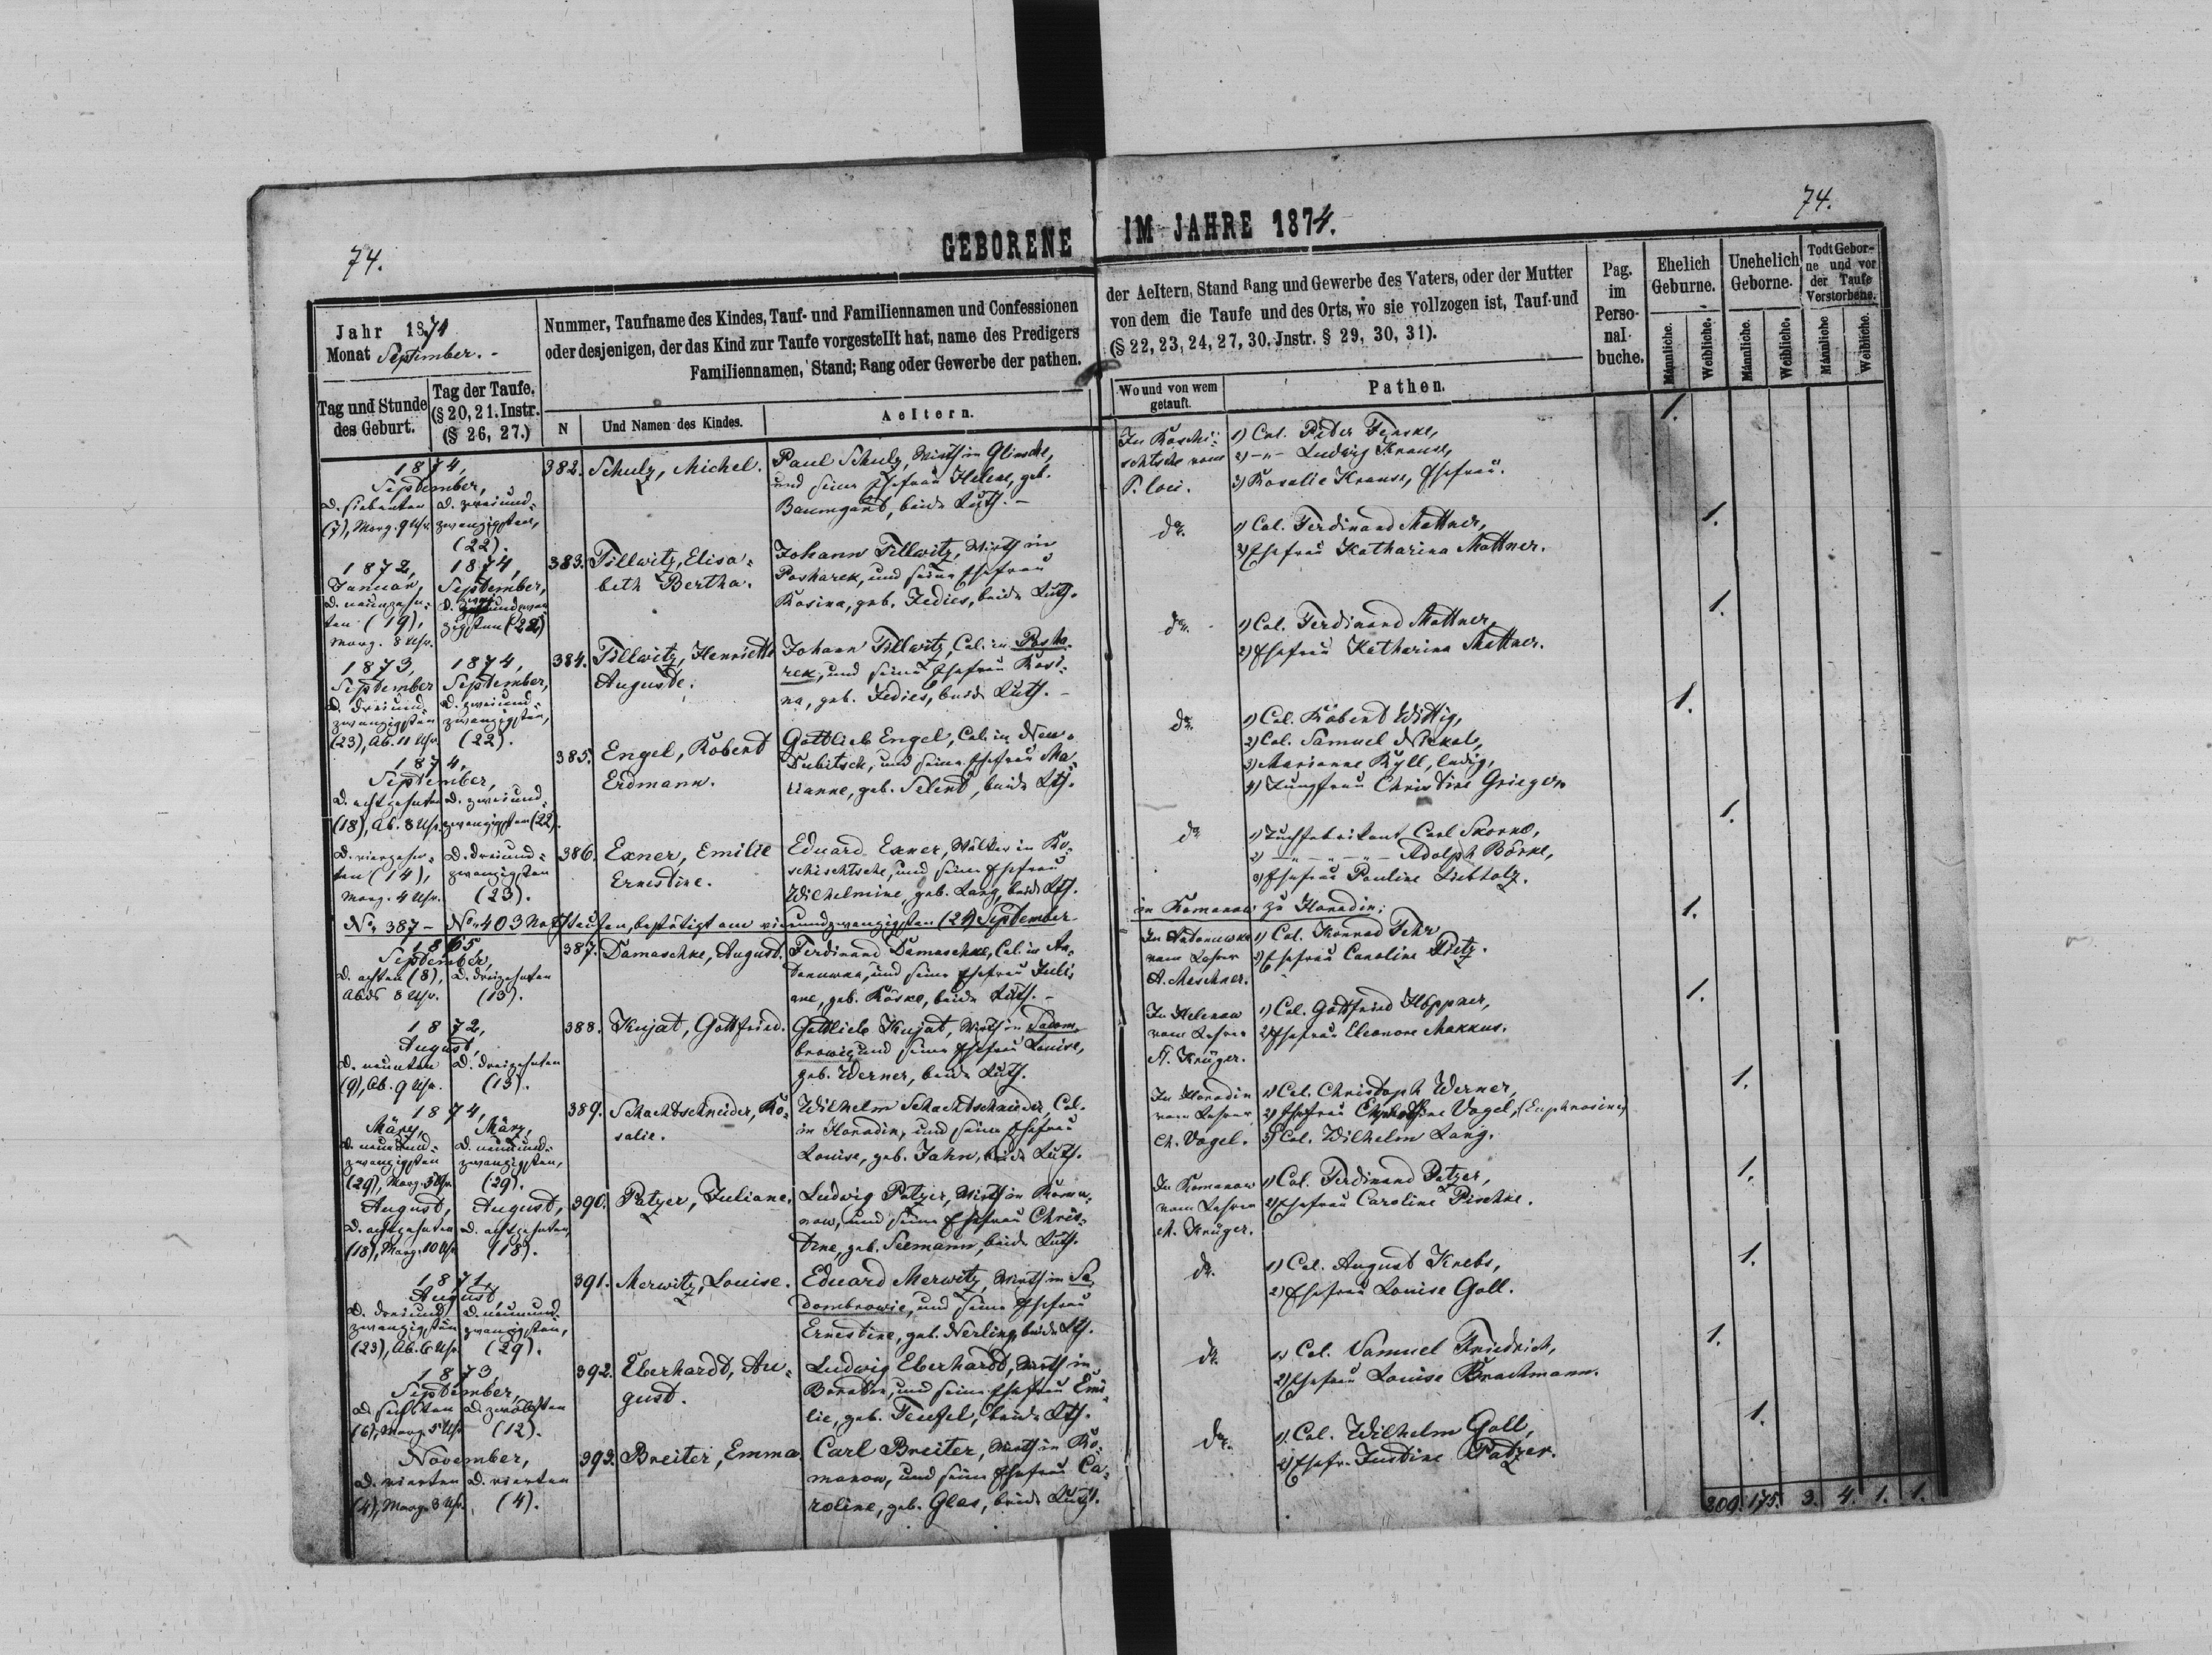 74.
GEBORENE
IM JAHRE 1874.
74.
Jahr 1874
Monat September.
Tag und Stunde des Geburt.
Tag der Taufe.
(§ 20, 21. Instr.
(§ 26, 27.)
Nummer, Taufname des Kindes, Tauf- und Familiennamen und Confessionen
oder desjenigen, der das Kind zur Taufe vorgestellt hat, name des Predigers
Familiennamen, Stand; Rang oder Gewerbe der pathen.
N
Und Namen des Kindes.
Aeltern.
der Aeltern, Stand Rang und Gewerbe des Vaters, oder der Mutter
von dem die Taufe und des Orts, wo sie vollzogen ist, Tauf-und
(§ 22, 23, 24, 27, 30. Jnstr. § 29, 30, 31).
Wo und von wem
getauft.
Pathen.
Pag.
im
Perso-
nal-
buche.
Ehelich
Geburne.
Unehelich
Geborne.
Todt Gebor-
ne und vor
der Taufe
Verstorbene.
Männliche.
Weibliche.
Männliche.
Weibliche.
Männliche
Weibliche.
1874,
September,
d. siebenten
(7), Morg. 9 Uhr.
d. zweiund-
zwanzigsten,
(22).
382.
Schulz, Michel.
Paul Schulz, Wirth in Glinsche,
und seine Ehefrau Helene, geb.
Baumgart, beide Luth. -
P. loci.
1) Col. Peter Fenske,
2) -"- Ludwig Krause,
3) Rosalie Krause, Ehefrau.
1.
1872,
Januar,
d. neunzehn-
ten (19),
Morg. 8 Uhr.
1874,
September,
zigsten (22)
383.
Tillwitz, Elisa-
beth Bertha.
Johann Tillwitz, Wirth in
Posharek, und seine Ehefrau
Rosina, geb. Jedies, beide Luth.
do.
1) Col. Ferdinand Mattner,
2) Ehefrau Katharina Mattner.
1.
1873,
September
d. dreiund-
zwanzigsten
(23), Ab. 11 Uhr.
1874,
September,
d. zweiund-
zwanzigsten,
(22).
384.
Tillwitz, Henriette
Auguste.
Johann Tillwitz, Col. in Posha-
rek, und seine Ehefrau Rosi-
na, geb. Jedies, beide Luth. -
do.
1) Col. Ferdinand Mattner,
2) Ehefrau Katharina Mattner.
1.
1874,
September,
d. achtzehnten
(18), Ab. 8 Uhr.
d. zweiund-
zwanzigsten (22).
385.
Engel, Robert
Erdmann.
Gottlieb Engel, Col. in Neu-
Dubitsch, und seine Ehefrau Ma-
rianne, geb. Selent, beide Lth.
do.
1) Col. Robert Wittig,
2) Col. Samuel Nickel,
3) Marianne Kyll, ledig,
4) Jungfrau Christine Grieger.
1.
d. vierzehn-
ten (14),
Morg. 4 Uhr.
d. dreiund-
zwanzigsten
(23).
386.
Exner, Emilie
Ernestine.
Eduard Exner, Walker in Ro-
schischtsche, und seine Ehefrau
Wilhelmine, geb. Lang, beide Lth.
do
1) Tuchfabrikant Carl Skorno,
2) -"- -"- Adolph Börke,
3) Ehefrau Pauline Liebholz.
1.
No. 387 - No. 403 Nothtaufen, bestätigt am vierundzwanzigsten (24) September
in Romanow zu Haradin:
1865,
September,
d. achten (8),
Abds 8 Uhr.
d. dreizehnten
(13).
387.
Damaschke, August.
Ferdinand Damaschke, Col. in An-
tonuwka, und seine Ehefrau Juli-
ane, geb. Röske, beide Luth. -
In Antonuwka
vom Lehrer
A. Meschner.
1) Col. Konrad Fehr
2) Ehefrau Caroline Dietz.
1.
1872,
August,
d. neunten
(9), Ab. 9 Uhr.
d. dreizehnten
(13).
388.
Kujat, Gottfried.
Gottlieb Kujat, Wirth in Sadom-
browie, und seine Ehefrau Louise,
geb. Werner, beide Luth.
In Helenow
vom Lehrer
A. Krüger.
1) Col. Gottfried Höppner,
2) Ehefrau Eleonore Makkus.
1.
1874,
März,
d. neunund-
zwanzigsten
(29), Morg. 3 Uhr.
März,
d. neunund-
zwanzigsten,
(29).
389.
Schachtschneider, Ro-
salie.
Wilhelm Schachtschneider, Col.
in Haradin, und seine Ehefrau
Louise, geb. Jahn, beide Luth.
In Haradin
vom Lehrer
Ch. Vogel.
1) Col. Christoph Werner,
2) Ehefrau Vogel, (Euphrosine)
3) Col. Wilhelm Lang.
1.
August,
d. achtzehnten
(18), Morg. 10 Uhr
August,
d. achtzehnten,
(18).
390.
Patzer, Juliane.
Ludwig Patzer, Wirth in Roma-
now, und seine Ehefrau Chris-
tine, geb. Seemann, beide Luth.
In Romanow
vom Lehrer
A. Krüger.
1) Col. Ferdinand Patzer,
2) Ehefrau Caroline Pischke.
1.
1871,
August,
d. dreiund-
zwanzigsten
(23), Ab. 6 Uhr
d. neunund-
zwanzigsten,
(29).
391.
Merwitz, Louise.
Eduard Merwitz, Wirth in Sa-
dombrowie, und seine Ehefrau
Ernestine, geb. Nerling, beide Lth.
do.
1) Col. August Krebs,
2) Ehefrau Louise Goll.
1.
1873,
September,
d. sechsten
(6), Morg. 5 Uhr
d. zwölften
(12).
392.
Eberhardt, Au-
gust.
Ludwig Eberhardt, Wirth in
Boratin, und seine Ehefrau Emi-
lie, geb. Teufel, beide Lth.
do.
1) Col. Samuel Friedrich,
2) Ehefrau Louise Brachmann.
1.
November,
d. vierten
(4), Morg. 3 Uhr.
d. vierten
(4).
393.
Breiter, Emma.
Carl Breiter, Wirth in Ro-
manow, und seine Ehefrau Ca-
roline, geb. Glas, beide Luth.
do.
1) Col. Wilhelm Goll,
2) Ehefr. Justine Patzer.
1.
209. 175. 3. 4. 1. 1.